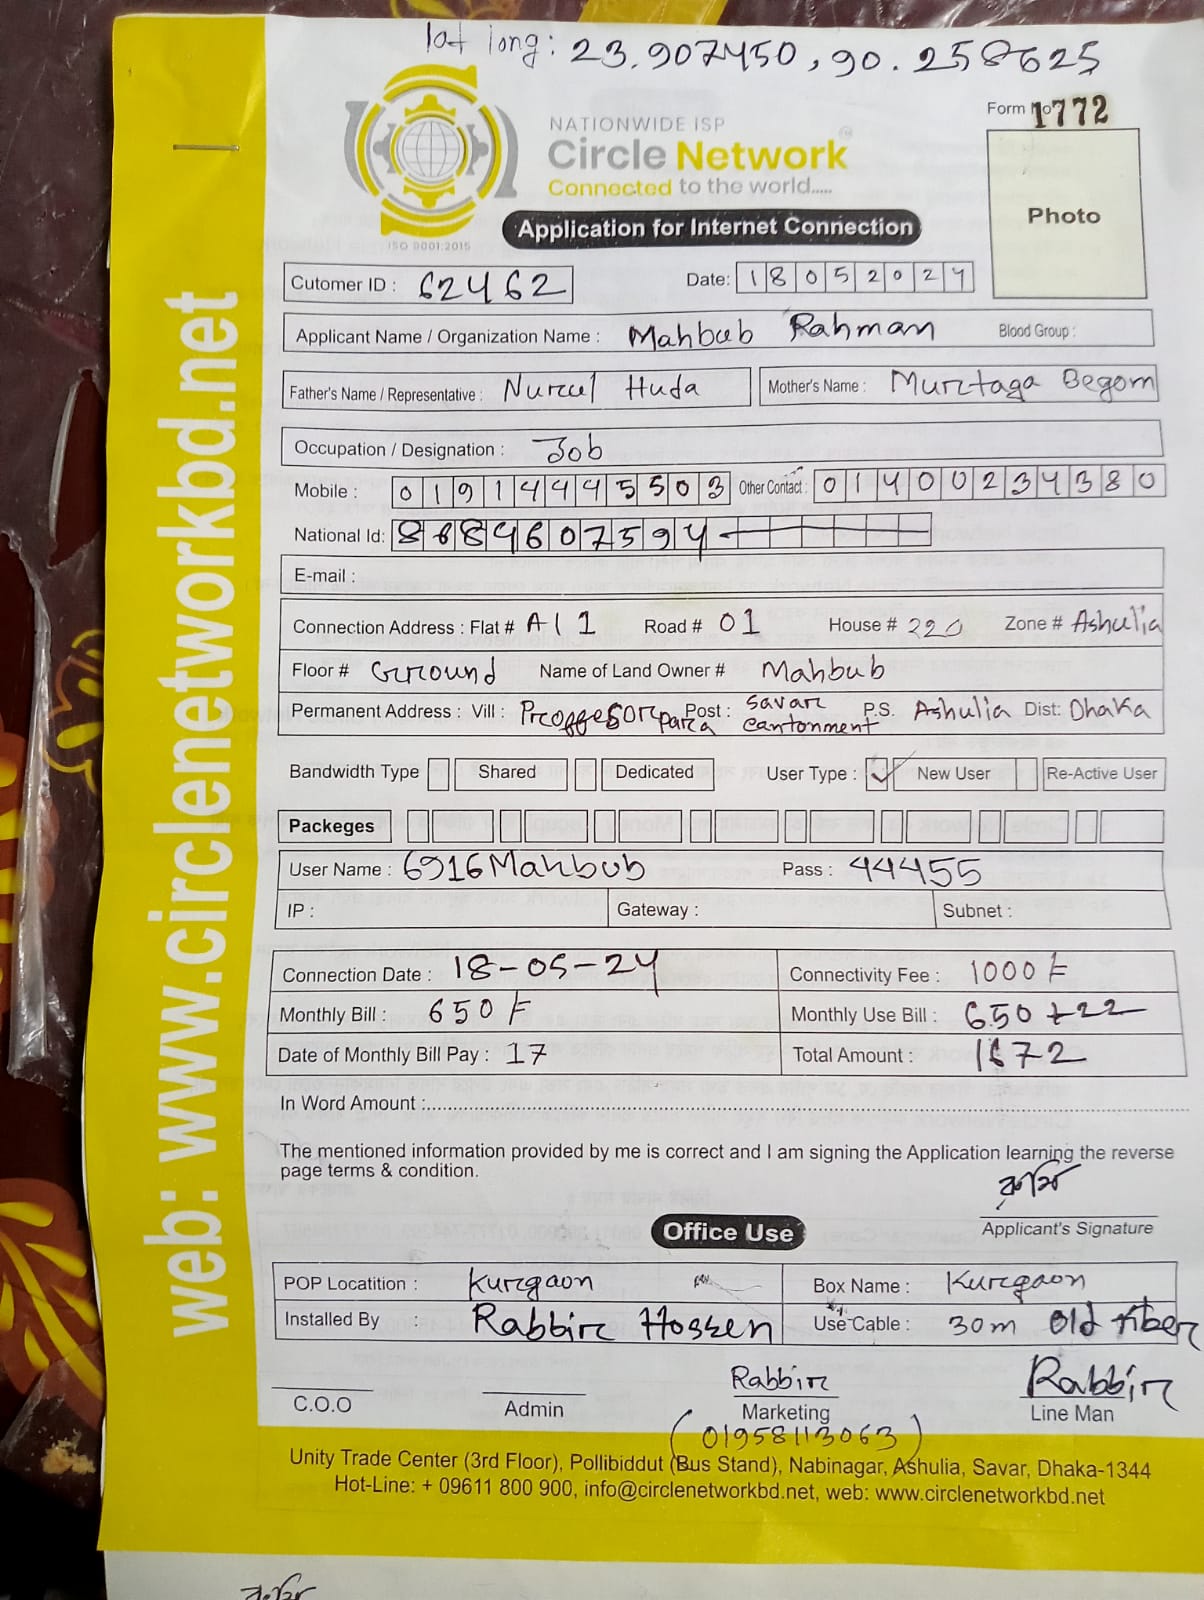 lat long: 23.907450, 90.258625
Form No 1772
NATIONWIDE ISP
Circle Network
Connected to the world.....
ISO 9001:2015
Photo
Application for Internet Connection
Cutomer ID : 62462 Date: 18052024
Applicant Name / Organization Name : Mahbub Rahman Blood Group :
Father's Name / Representative : Nurul Huda Mother's Name : Murtaga Begom
Occupation / Designation : Job
Mobile : 01914445503 Other Contact : 01400234380
National Id: 8684607594
E-mail :
Connection Address : Flat # A11 Road # 01 House # 220 Zone # Ashulia
Floor # Ground Name of Land Owner # Mahbub
Permanent Address : Vill : Proffesor para Post : savar cantonment P.S. Ashulia Dist: Dhaka
Bandwidth Type Shared Dedicated User Type : ✓ New User Re-Active User
Packeges
User Name : 6916Mahbub Pass : 44455
IP : Gateway : Subnet :
Connection Date : 18-05-24 Connectivity Fee : 1000/-
Monthly Bill : 650/- Monthly Use Bill : 650+22
Date of Monthly Bill Pay : 17 Total Amount : 1672
In Word Amount :
The mentioned information provided by me is correct and I am signing the Application learning the reverse
page terms & condition.
Applicant's Signature
Office Use
POP Locatition : Kurgaon Box Name : Kurgaon
Installed By : Rabbir Hossen Use Cable : 30m Old fiber
Rabbir Rabbir
C.O.O Admin Marketing Line Man
(01958113063)
Unity Trade Center (3rd Floor), Pollibiddut (Bus Stand), Nabinagar, Ashulia, Savar, Dhaka-1344
Hot-Line: + 09611 800 900, info@circlenetworkbd.net, web: www.circlenetworkbd.net
web: www.circlenetworkbd.net